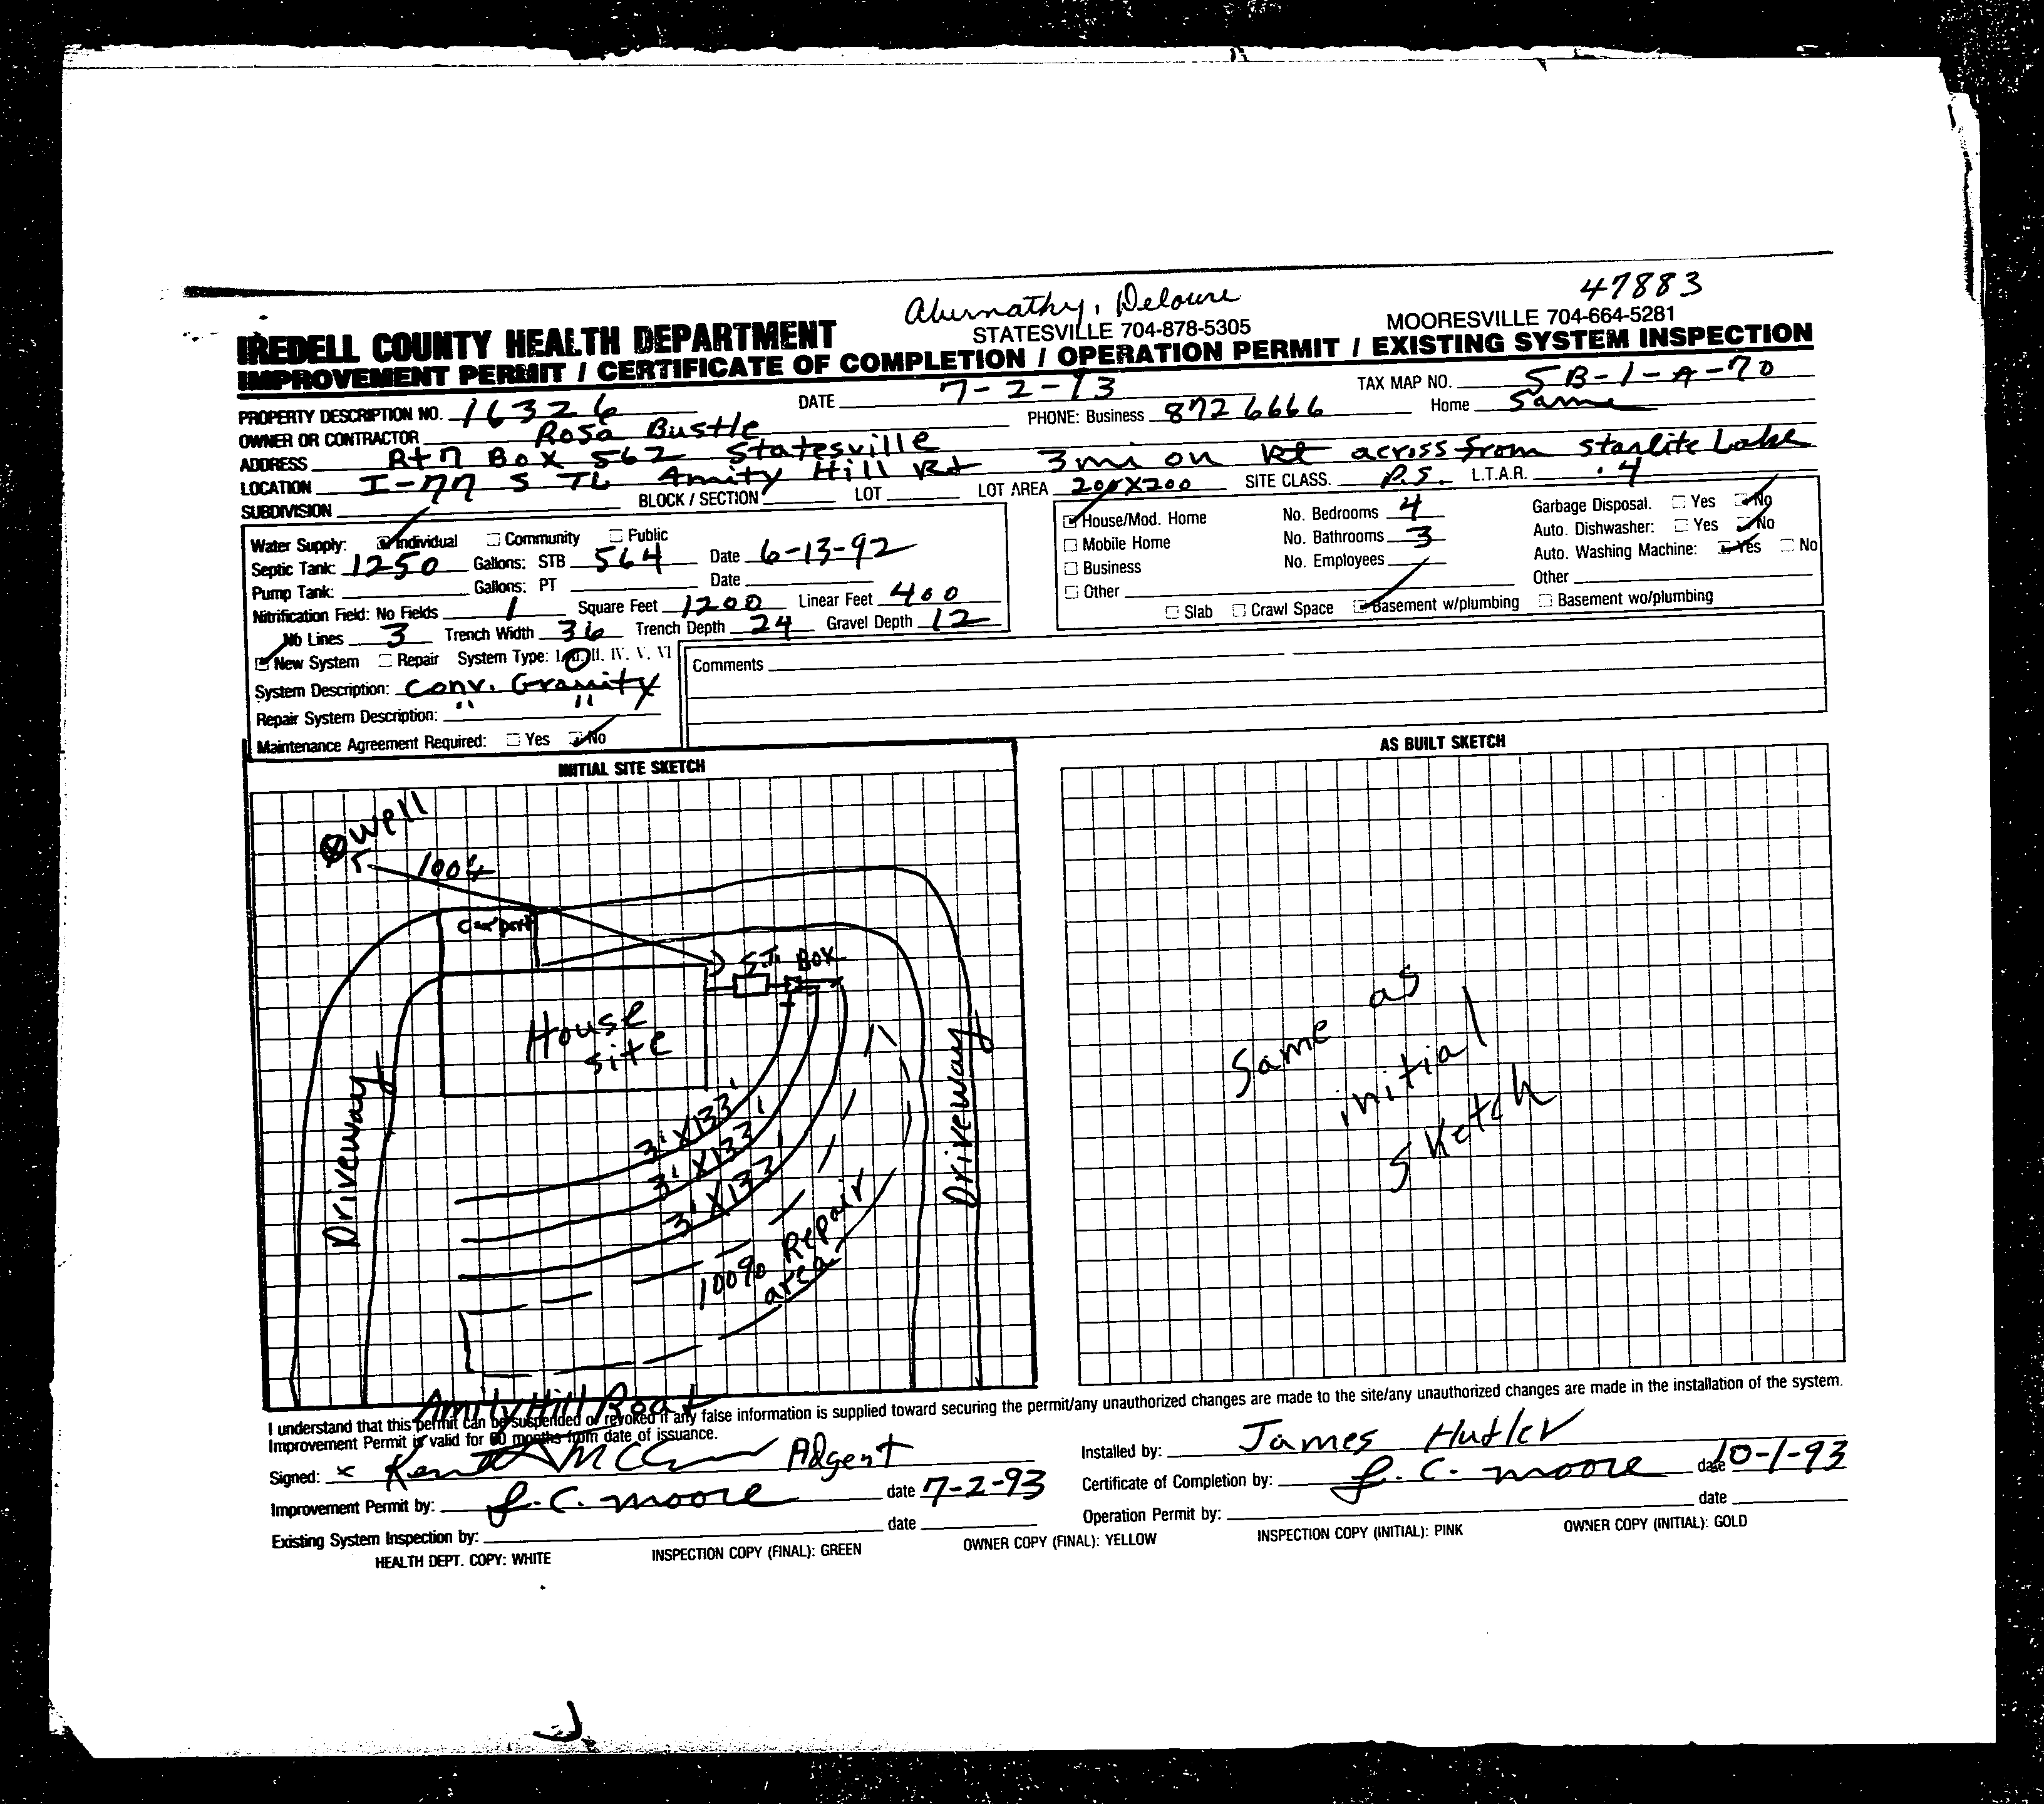 47883
Abernathy, Deloure
IREDELL COUNTY HEALTH DEPARTMENT STATESVILLE 704-878-5305 MOORESVILLE 704-664-5281
IMPROVEMENT PERMIT / CERTIFICATE OF COMPLETION / OPERATION PERMIT / EXISTING SYSTEM INSPECTION
PROPERTY DESCRIPTION NO. 16326 DATE 7-2-93 TAX MAP NO. 5B-1-A-70
OWNER OR CONTRACTOR Rosa Bustle PHONE: Business 872 6666 Home Same
ADDRESS Rt 7 Box 562 Statesville
LOCATION I-77 S TL Amity Hill Rd 3 mi on Rt across from Starlite Lake
SUBDIVISION BLOCK / SECTION LOT LOT AREA 200X200 SITE CLASS. P.S. L.T.A.R. .4
Water Supply: Individual Community Public
Septic Tank: 1250 Gallons: STB 564 Date 6-13-92
Pump Tank: Gallons: PT Date
Nitrification Field: No Fields 1 Square Feet 1200 Linear Feet 400
No Lines 3 Trench Width 36 Trench Depth 24 Gravel Depth 12
House/Mod. Home No. Bedrooms 4 Garbage Disposal. Yes No
Mobile Home No. Bathrooms 3 Auto. Dishwasher: Yes No
Business No. Employees Auto. Washing Machine: Yes No
Other Other
Slab Crawl Space Basement w/plumbing Basement wo/plumbing
New System Repair System Type: I, II, III, IV, V, VI
System Description: Conv. Gravity
Repair System Description: " "
Maintenance Agreement Required: Yes No
Comments
INITIAL SITE SKETCH
well
100'+
Carport
S.T. Box
House
site
Driveway
Driveway
3'X133'
3'X133'
3'X133'
100% Repair
area
Amity Hill Road
AS BUILT SKETCH
Same as
initial
sketch
I understand that this permit can be suspended or revoked if any false information is supplied toward securing the permit/any unauthorized changes are made to the site/any unauthorized changes are made in the installation of the system.
Improvement Permit is valid for 60 months from date of issuance.
Signed: x Adgent
Improvement Permit by: J.C. Moore date 7-2-93
Existing System Inspection by: date
Installed by: James Hutler
Certificate of Completion by: J.C. Moore date 10-1-93
Operation Permit by: date
HEALTH DEPT. COPY: WHITE INSPECTION COPY (FINAL): GREEN OWNER COPY (FINAL): YELLOW INSPECTION COPY (INITIAL): PINK OWNER COPY (INITIAL): GOLD